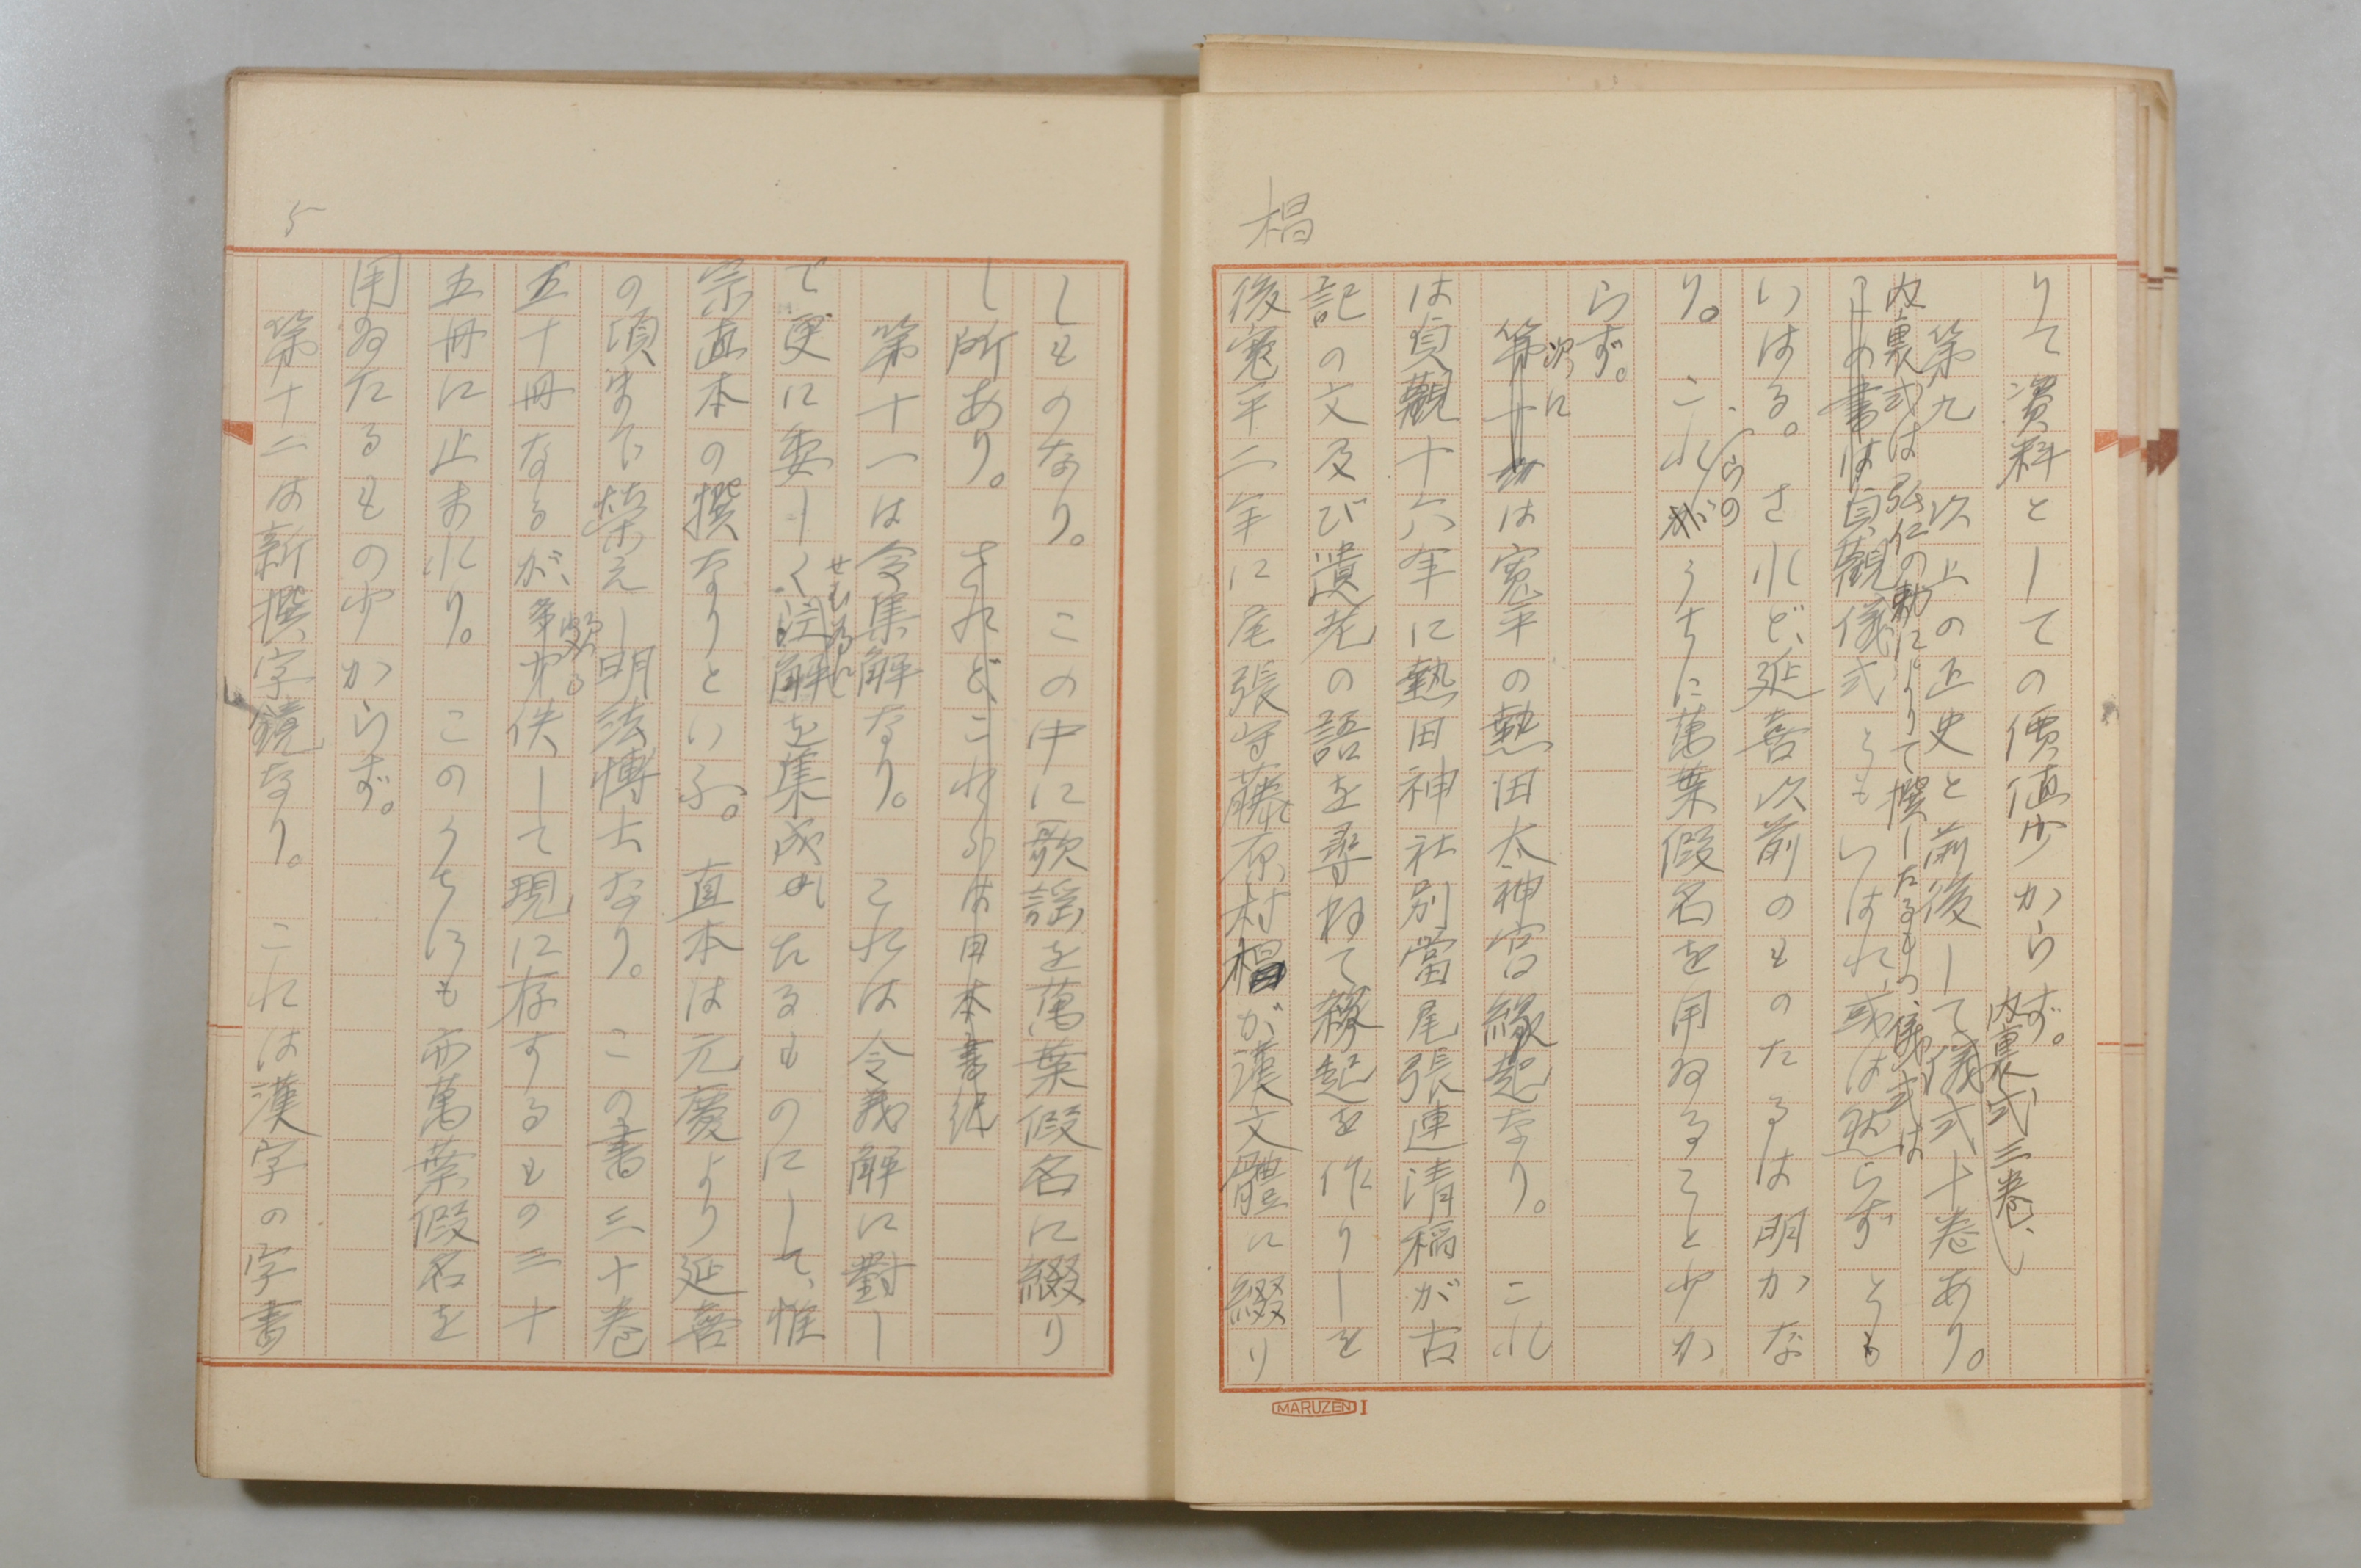 りて資料としての價値少からず。
内裏式三巻、
第九　以上の正史と前後して儀式十巻あり。
内裏式は弘仁の勅によりて撰したるもの、儀式は
の書は貞觀儀式ともいはれ、或は然らずとも
いはる。されど、延喜以前のものたるは明かな
り。これがうちに萬葉假名を用ゐること少か
らの
らず。
次に
第十は寛平の熱田太神宮縁起なり。これ
は貞觀十六年に熱田神社別當尾張連清稲が古
記の文及び遺老の語を尋ねて縁起を作りしを
後寛平二年に尾張守藤原村椙が漢文體に綴り
椙
MARUZEN I
しものなり。この中に歌謡を萬葉假名に綴り
し所あり。されど、これらは日本書紀
第十一は令集解なり。これは令義解に對し
て更に委しく註解を集成したるものにして、惟
せむ為に
宗直本の撰なりといふ。直本は元慶より延喜
の頃まで榮えし明法博士なり。この書三十巻
五十冊なるが、多少佚して現に存するもの三十
五冊に止まれり。このうちにも亦萬葉假名を
用ゐたるもの少からず。
第十二は新撰字鏡なり。これは漢字の字書
5